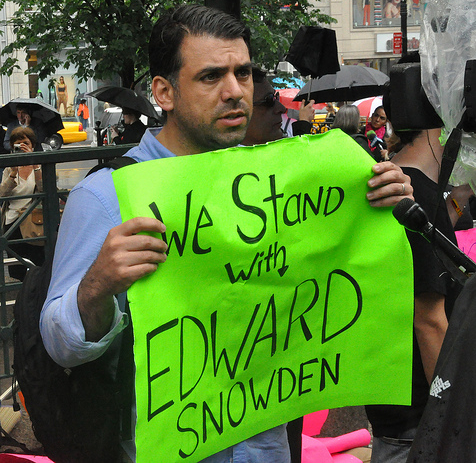 We Stand
with
EDWARD
SNOWDEN